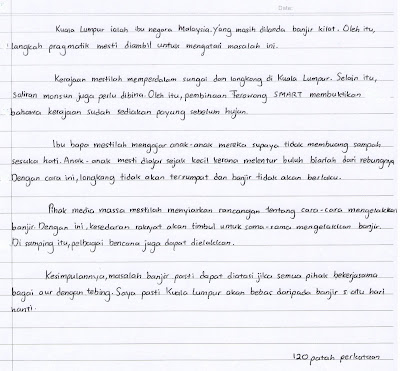 Date:
Kuala Lumpur ialah ibu negara Malaysia yang masih dilanda banjir kilat. Oleh itu,
langkah pragmatik mesti diambil untuk mengatasi masalah ini.
Kerajaan mestilah memperdalam sungai dan longkang di Kuala Lumpur. Selain itu,
saliran monsun juga perlu dibina. Oleh itu, pembinaan Terowong SMART membuktikan
bahawa kerajaan sudah sediakan payung sebelum hujan.
Ibu bapa mestilah mengajar anak-anak mereka supaya tidak membuang sampah
sesuka hati. Anak-anak mesti diajar sejak kecil kerana melentur buluh biarlah dari rebungnya
Dengan cara ini, longkang tidak akan tersumpat dan banjir tidak akan berlaku.
Pihak media massa mestilah menyiarkan rancangan tentang cara-cara mengelakkan
banjir. Dengan ini, kesedaran rakyat akan timbul untuk sama-sama mengelakkan banjir.
Di samping itu, pelbagai bencana juga dapat dielakkan.
Kesimpulannya, masalah banjir pasti dapat diatasi jika semua pihak bekerjasama
bagai aur dengan tebing. Saya pasti Kuala Lumpur akan bebas daripada banjir satu hari
nanti.
120 patah perkataan